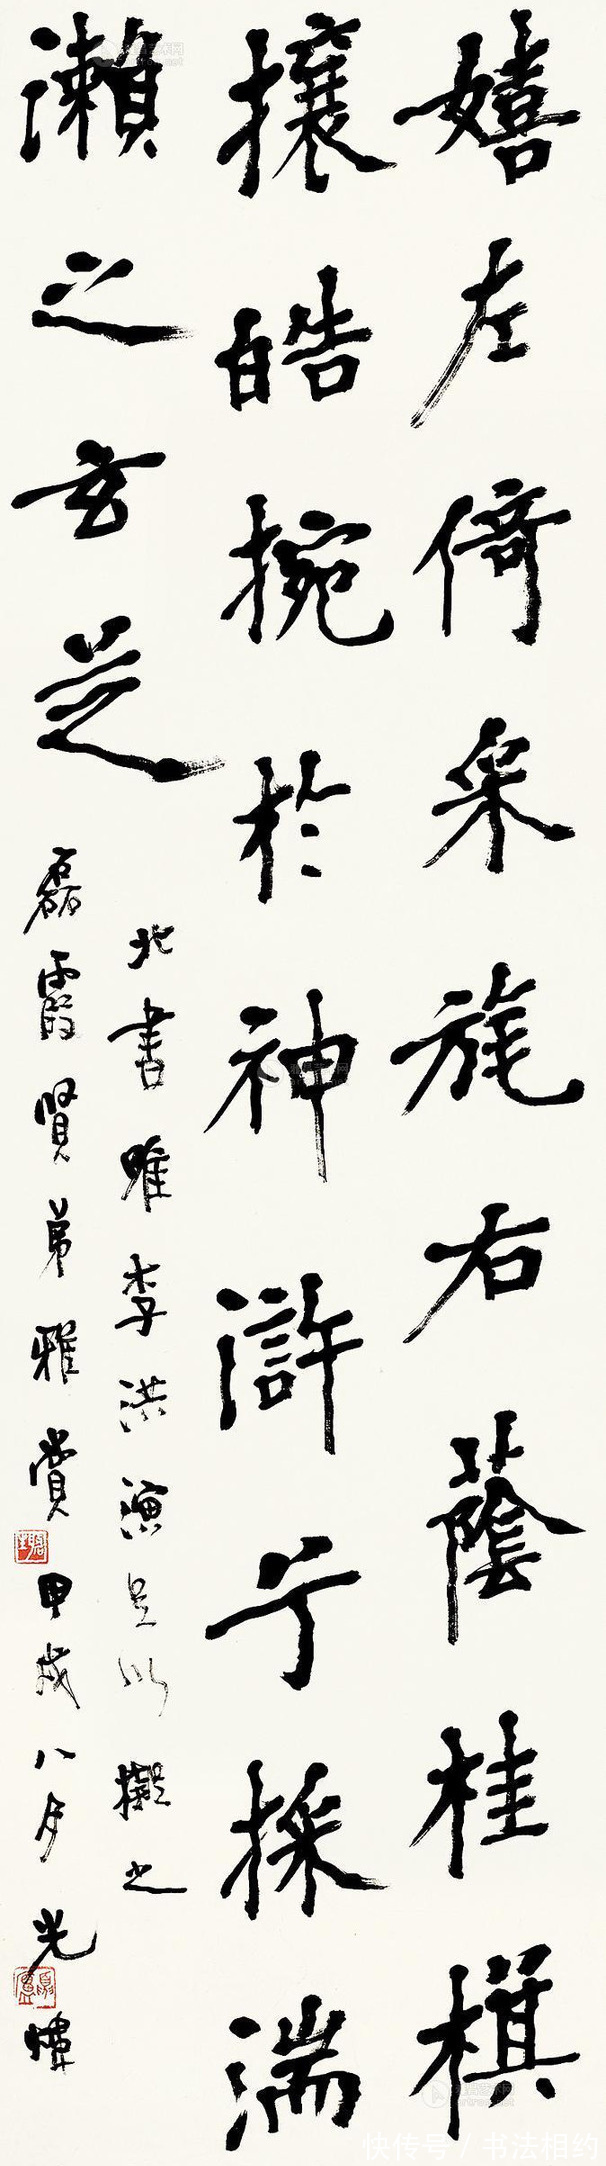 嬉左倚采旄右蔭桂棋
攘皓捥於神滸兮採湍
瀨之玄芝
北書唯李洪演足以擬之
磊霞賢弟雅賞甲戌八月光煒
快传号/书法相约